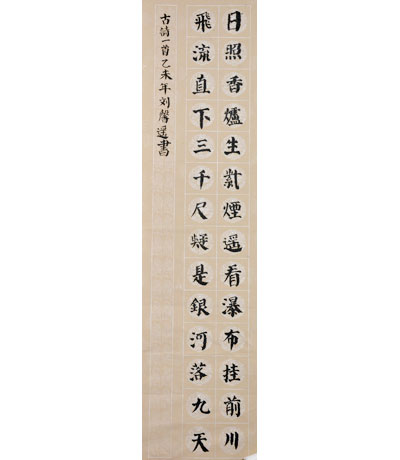 日照香爐生紫煙遥看瀑布挂前川
飛流直下三千尺疑是銀河落九天
古詩一首乙未年刘馨遥書